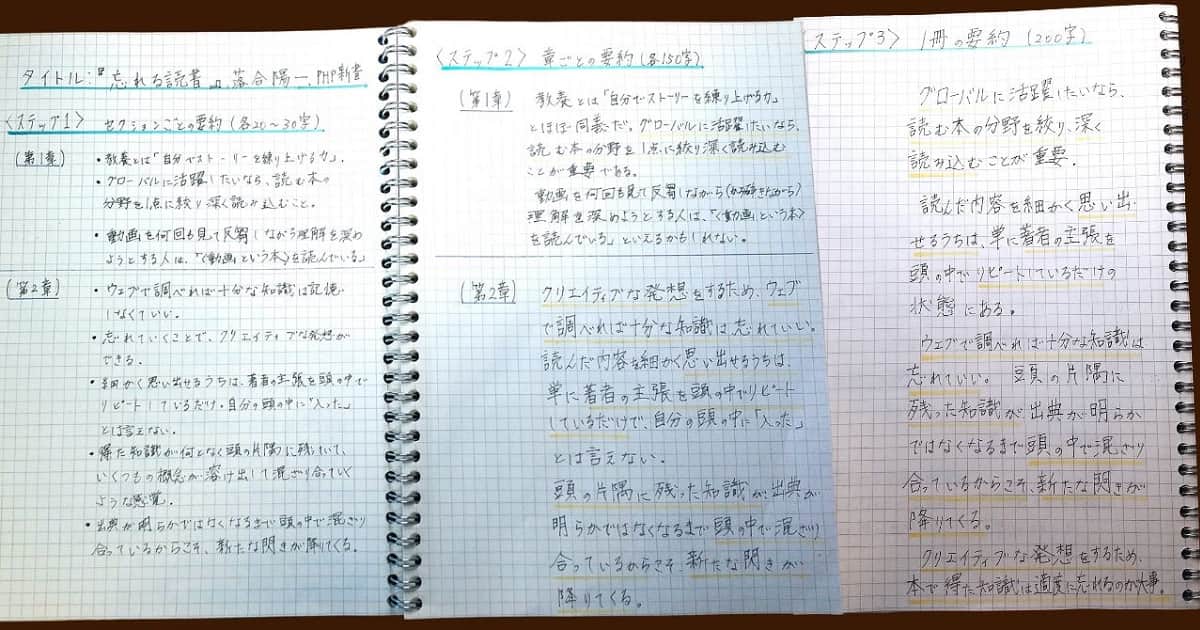 タイトル:『忘れる読書』、落合陽一、PHP新書
〈ステップ1〉 セクションごとの要約(各20～30字)
(第1章)
・教養とは「自分でストーリーを練り上げる力」.
・グローバルに活躍したいなら、読む本の
分野を1点に絞り深く読み込むこと。
・動画を何回も見て反芻しながら理解を深め
ようとする人は、「〈動画という本〉を読んでいる」
(第2章)
・ウェブで調べれば十分な知識は記憶
しなくていい。
・忘れていくことで、クリエイティブな発想が
できる.
・細かく思い出せるうちは、著者の主張を頭の中で
リピートしているだけ.自分の頭の中に「入った」
とは言えない.
・得た知識が何となく頭の片隅に残っていて、
いくつもの概念が溶け出して混ざり合っていく
ような感覚.
・出典が明らかではなくなるまで頭の中で混ざり
合っているからこそ、新たな閃きが降りてくる.
〈ステップ2〉 章ごとの要約(各150字)
(第1章)
教養とは「自分でストーリーを練り上げる力」
とほぼ同義だ。グローバルに活躍したいなら、
読む本の分野を1点に絞り深く読み込む
ことが重要である。
動画を何回も見て反芻しながら
理解を深めようとする人は、「〈動画という本〉
を読んでいる」といえるかもしれない。
(第2章)
クリエイティブな発想をするため、ウェブ
で調べれば十分な知識は忘れていい。
読んだ内容を細かく思い出せるうちは、
単に著者の主張を頭の中でリピート
しているだけで、自分の頭の中に「入った」
とは言えない.
頭の片隅に残った知識が出典が
明らかではなくなるまで頭の中で混ざり
合っているからこそ、新たな閃きが
降りてくる。
〈ステップ3〉 1冊の要約(200字)
グローバルに活躍したいなら、
読む本の分野を絞り、深く
読み込むことが重要.
読んだ内容を細かく思い出
せるうちは、単に著者の主張を
頭の中でリピートしているだけの
状態にある。
ウェブで調べれば十分な知識は
忘れていい。頭の片隅に
残った知識が出典が明らか
ではなくなるまで頭の中で混ざり
合っているからこそ、新たな閃きが
降りてくる。
クリエイティブな発想をするため、
本で得た知識は適度に忘れるのが大事。